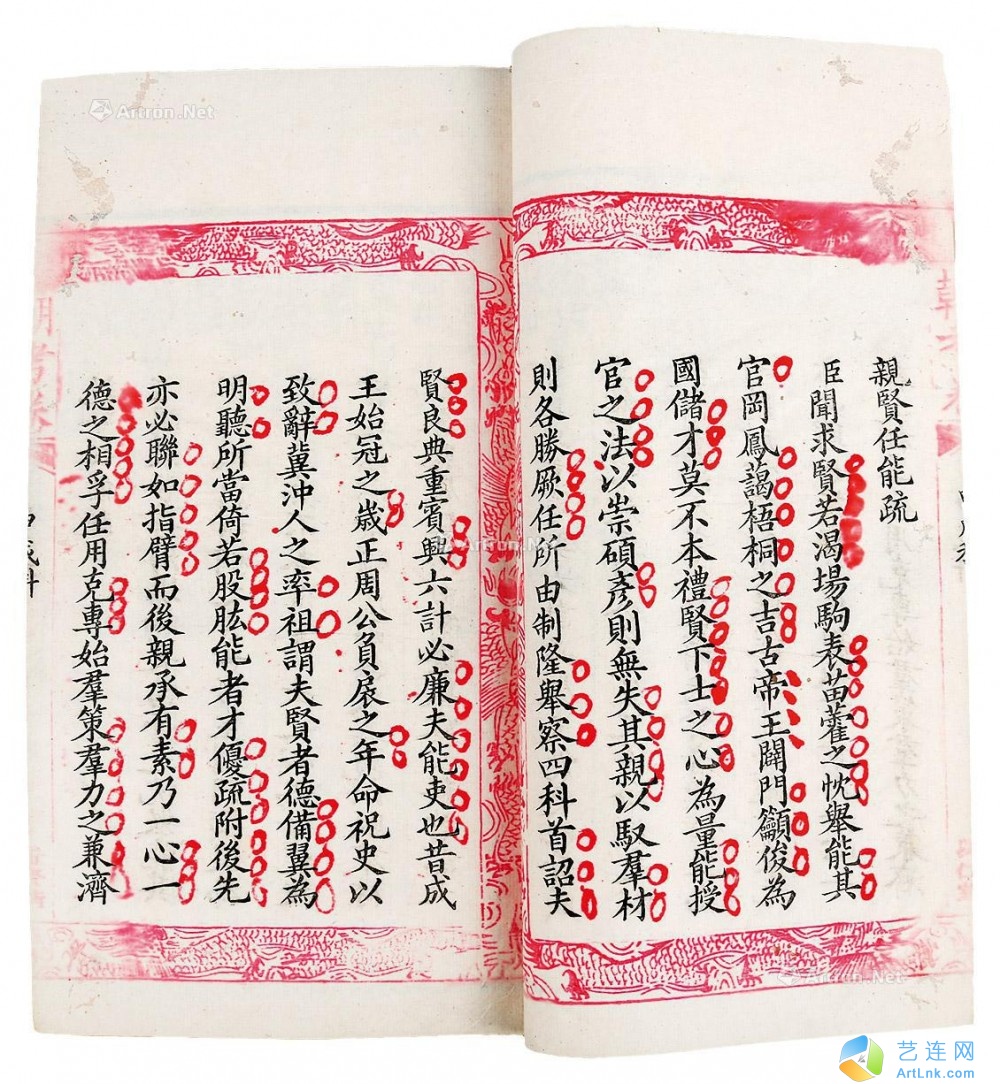 親賢任能疏
臣聞求賢若渴場駒表苗藿之忱舉能其
官岡鳳藹梧桐之吉古帝王闢門籲俊為
國儲才莫不本禮賢下士之心為量能授
官之法以崇碩彥則無失其親以馭羣材
則各勝厥任所由制隆舉察四科首詔夫
賢良典重賓興六計必廉夫能吏也昔成
王始冠之歲正周公負扆之年命祝史以
致辭冀沖人之率祖謂夫賢者德備翼為
明聽所當倚若股肱能者才優疏附後先
亦必聯如指臂而後親承有素乃一心一
德之相孚任用克專始羣策羣力之兼濟
朝考卷
Artron.Net
Artron.Net
艺连网
ArtLnk.com